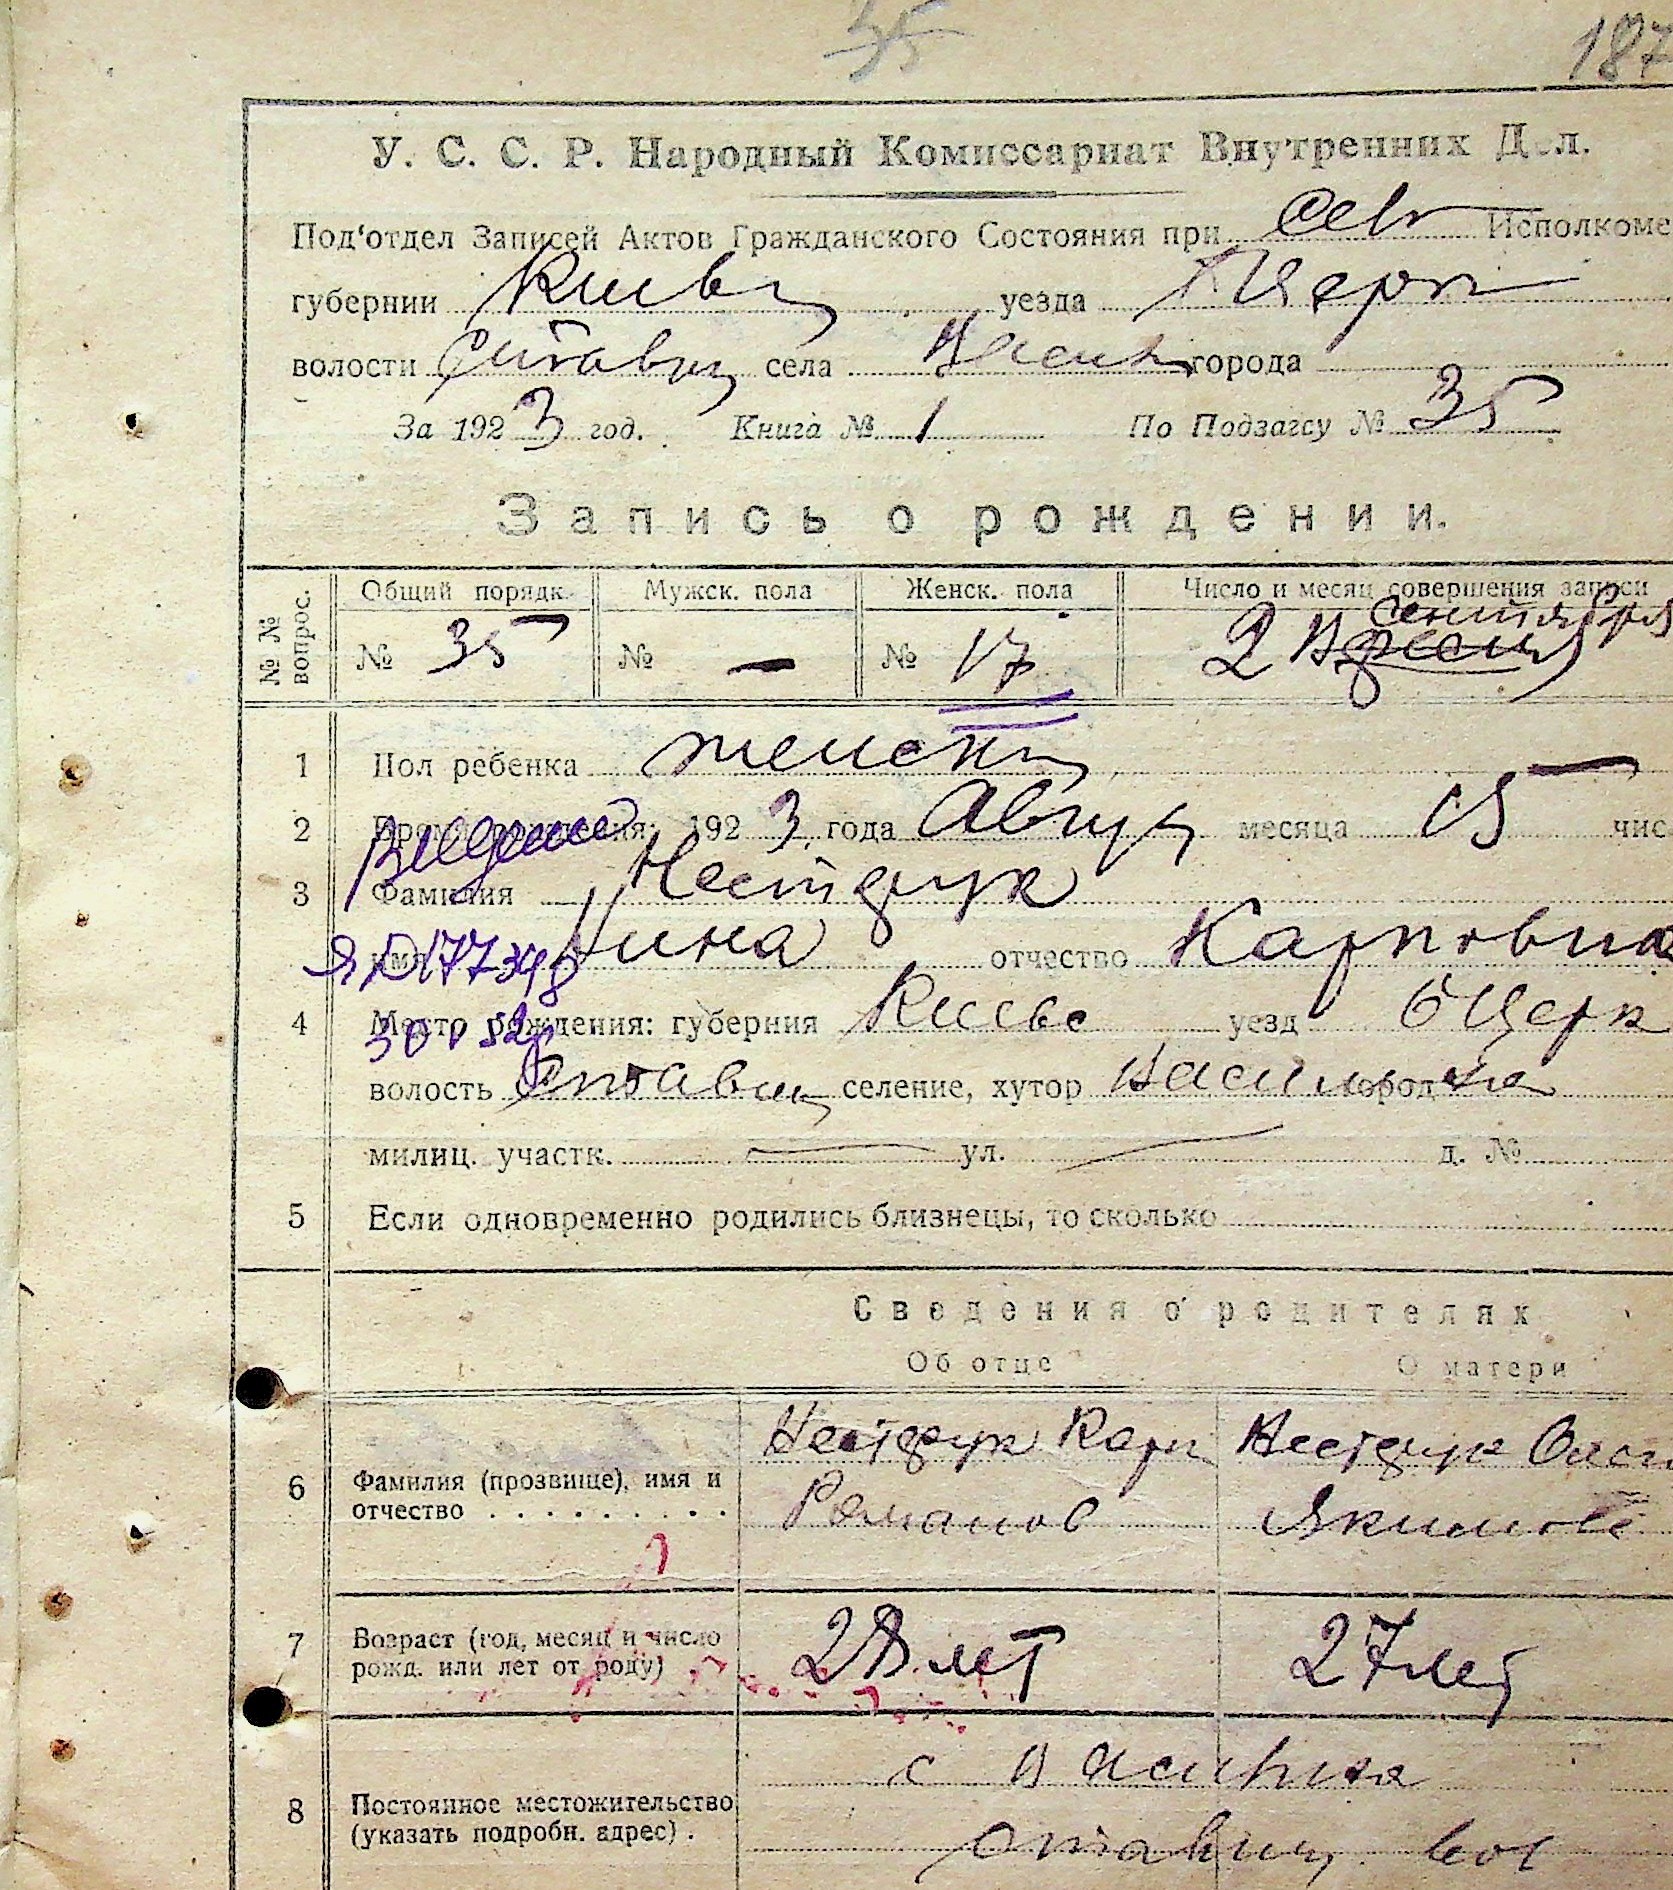 35
187
У. С. С. Р. Народный Комиссариат Внутренних Дел.
Под'отдел Записей Актов Гражданского Состояния при Исполкоме
губернии Киевщ уезда БЦерк
волости Ставищ села Васил города
За 1923 год. Книга № 1 По Подзагсу № 35
Запись о рождении.
№ № вопрос. Общий порядк. Мужск. пола Женск. пола Число и месяц совершения записи
сентября
№ 35 № — № 17 2 Вресня
1 Пол ребенка женскы
2 Время рождения: 1923 года Август месяца 15 чис
3 Фамилия Нестерук
имя Нина отчество Карповна
4 Место рождения: губерния Киевс уезд БЦерк
волость Ставищ селение, хутор город
милиц. участк. — ул. — д. №
5 Если одновременно родились близнецы, то сколько
Сведения о родителях
Об отце О матери
Нестерук Карп Нестерук
6 Фамилия (прозвище), имя и отчество . . . . . . . . . Романов Якимовс
7 Возраст (год, месяц и число рожд. или лет от роду) . 28 лет 27 лет
8 Постоянное местожительство (указать подробн. адрес) . с
Ставищ вол